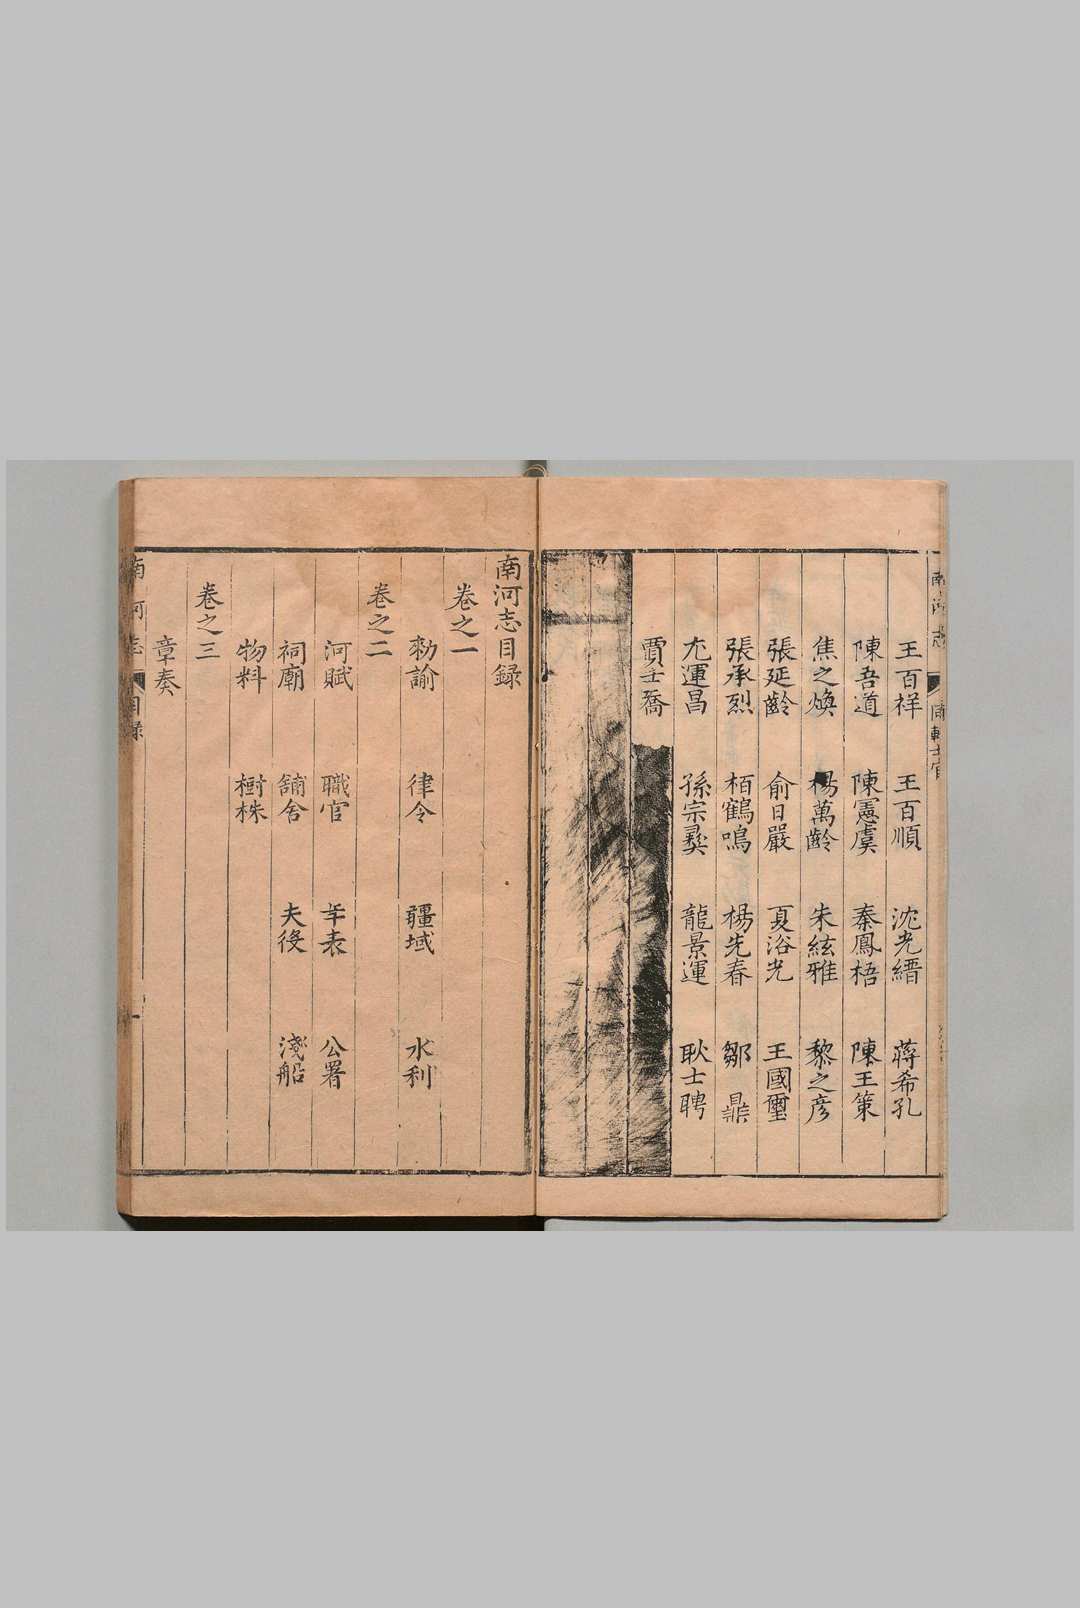 王百祥 王百順 沈光縉 蔣希孔
陳吾道 陳憲虞 秦鳳梧 陳王策
焦之煥 楊萬齡 朱絃雅 黎之彥
張延齡 俞日嚴 夏浴光 王國璽
張承烈 栢鶴鳴 楊先春 鄒鼎
尤運昌 孫宗彞 龍景運 耿士聘
賈壬喬
南河志目録
卷之一
勑諭 律令 疆域 水利
卷之二
河賦 職官 年表 公署
祠廟 舖舍 夫役 淺船
物料 樹株
卷之三
章奏
南河志 目録 一